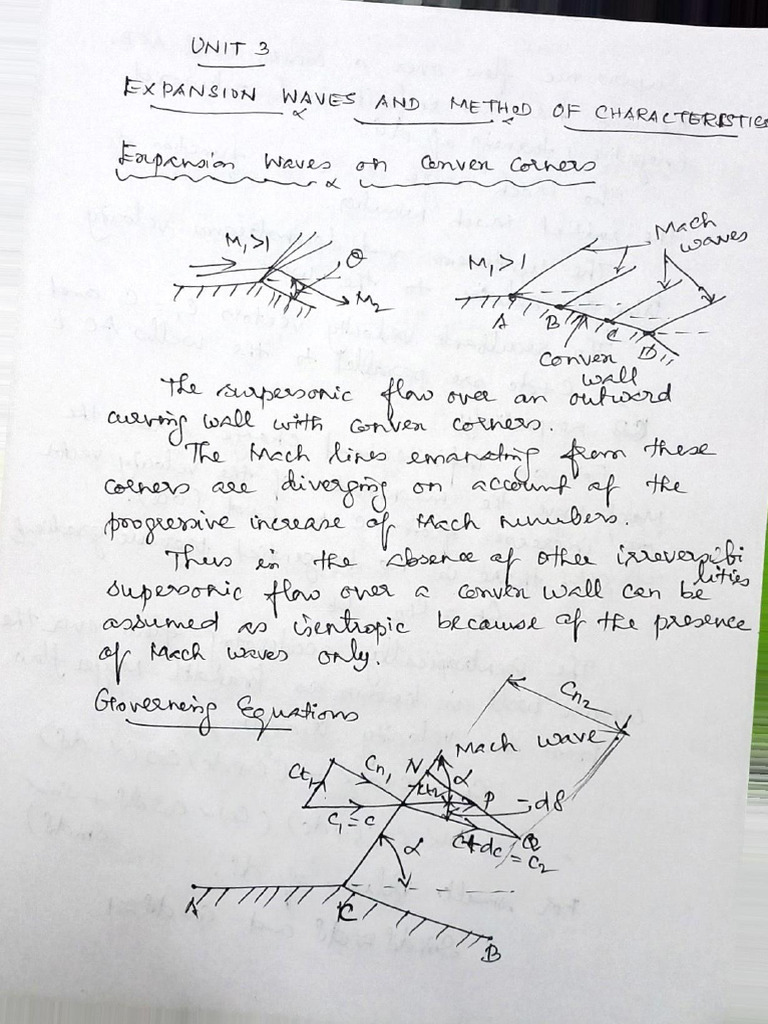 UNIT 3
EXPANSION WAVES AND METHOD OF CHARACTERISTICS
Expansion Waves on Convex Corners
M₁>1
θ
M₂
M₁>1
Mach
waves
A
B
C
D
Convex
wall
The supersonic flow over an outward
curving wall with convex corners.
The Mach lines emanating from these
corners are diverging on account of the
progressive increase of Mach numbers.
Thus in the absence of other irreversibi
lities
supersonic flow over a convex wall can be
assumed as isentropic because of the presence
of Mach waves only.
Governing Equations
Cn₂
Mach wave
Ct₁
Cn₁
N
α
Ct₂
P
dδ
C₁=c
α
C+dc=C₂
Q
A
C
B